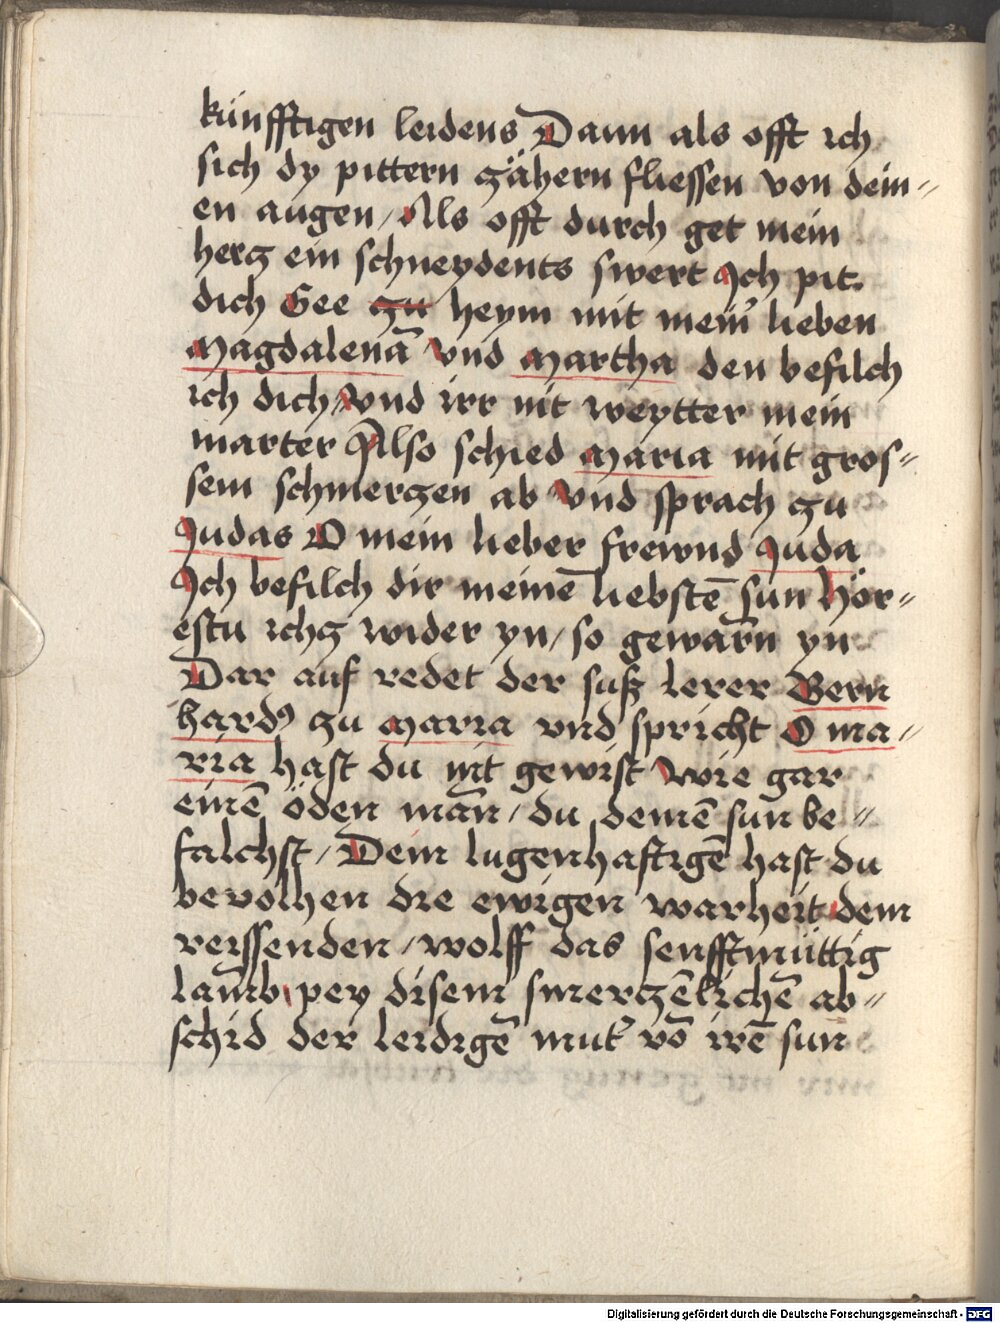 künfftigen leidens Dann als offt ich
sich dy pittern zähern fliessen von dein〃
en augen / Als offt durch get mein
hercz ein schneydents swert Ich pit.
dich Gee zu heym mit mein̾ lieben
Magdalenā vnd Martha den befilch
ich dich / vnd irr nit weytter mein
marter Also schied Maria mit gros〃
sem schmerczen ab vnd sprach zu
Judas O mein lieber frewnd Juda
Ich befilch dir meinē liebstē sun Hör〃
estu ichcz wider yn / so gewarn yn
Dar auf redet der suß lerer Bern
hardꝰ zu Maria vnd spricht O ma〃
ria hast du nit gewist Wie gar
einē öden man̄ / du deinē sun be〃
falchst / Dem lugenhaftigē hast du
bevolhen die ewigen warheit dem
reissenden / wolff das senfftmüttig
lam̄b pey disem smerczēlichē ab〃
schid der leidigē mut̾ vō irē sun
Digitalisierung gefördert durch die Deutsche Forschungsgemeinschaft - DFG